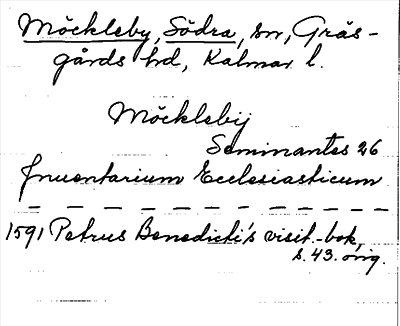 Möckleby, Södra, sn, Gräs-
gårds hd, Kalmar l.
Möckleby
Seminantes 26
Inuentarium Ecclesiasticum
1591 Petrus Benedicti's visit.-bok,
s. 43. orig.